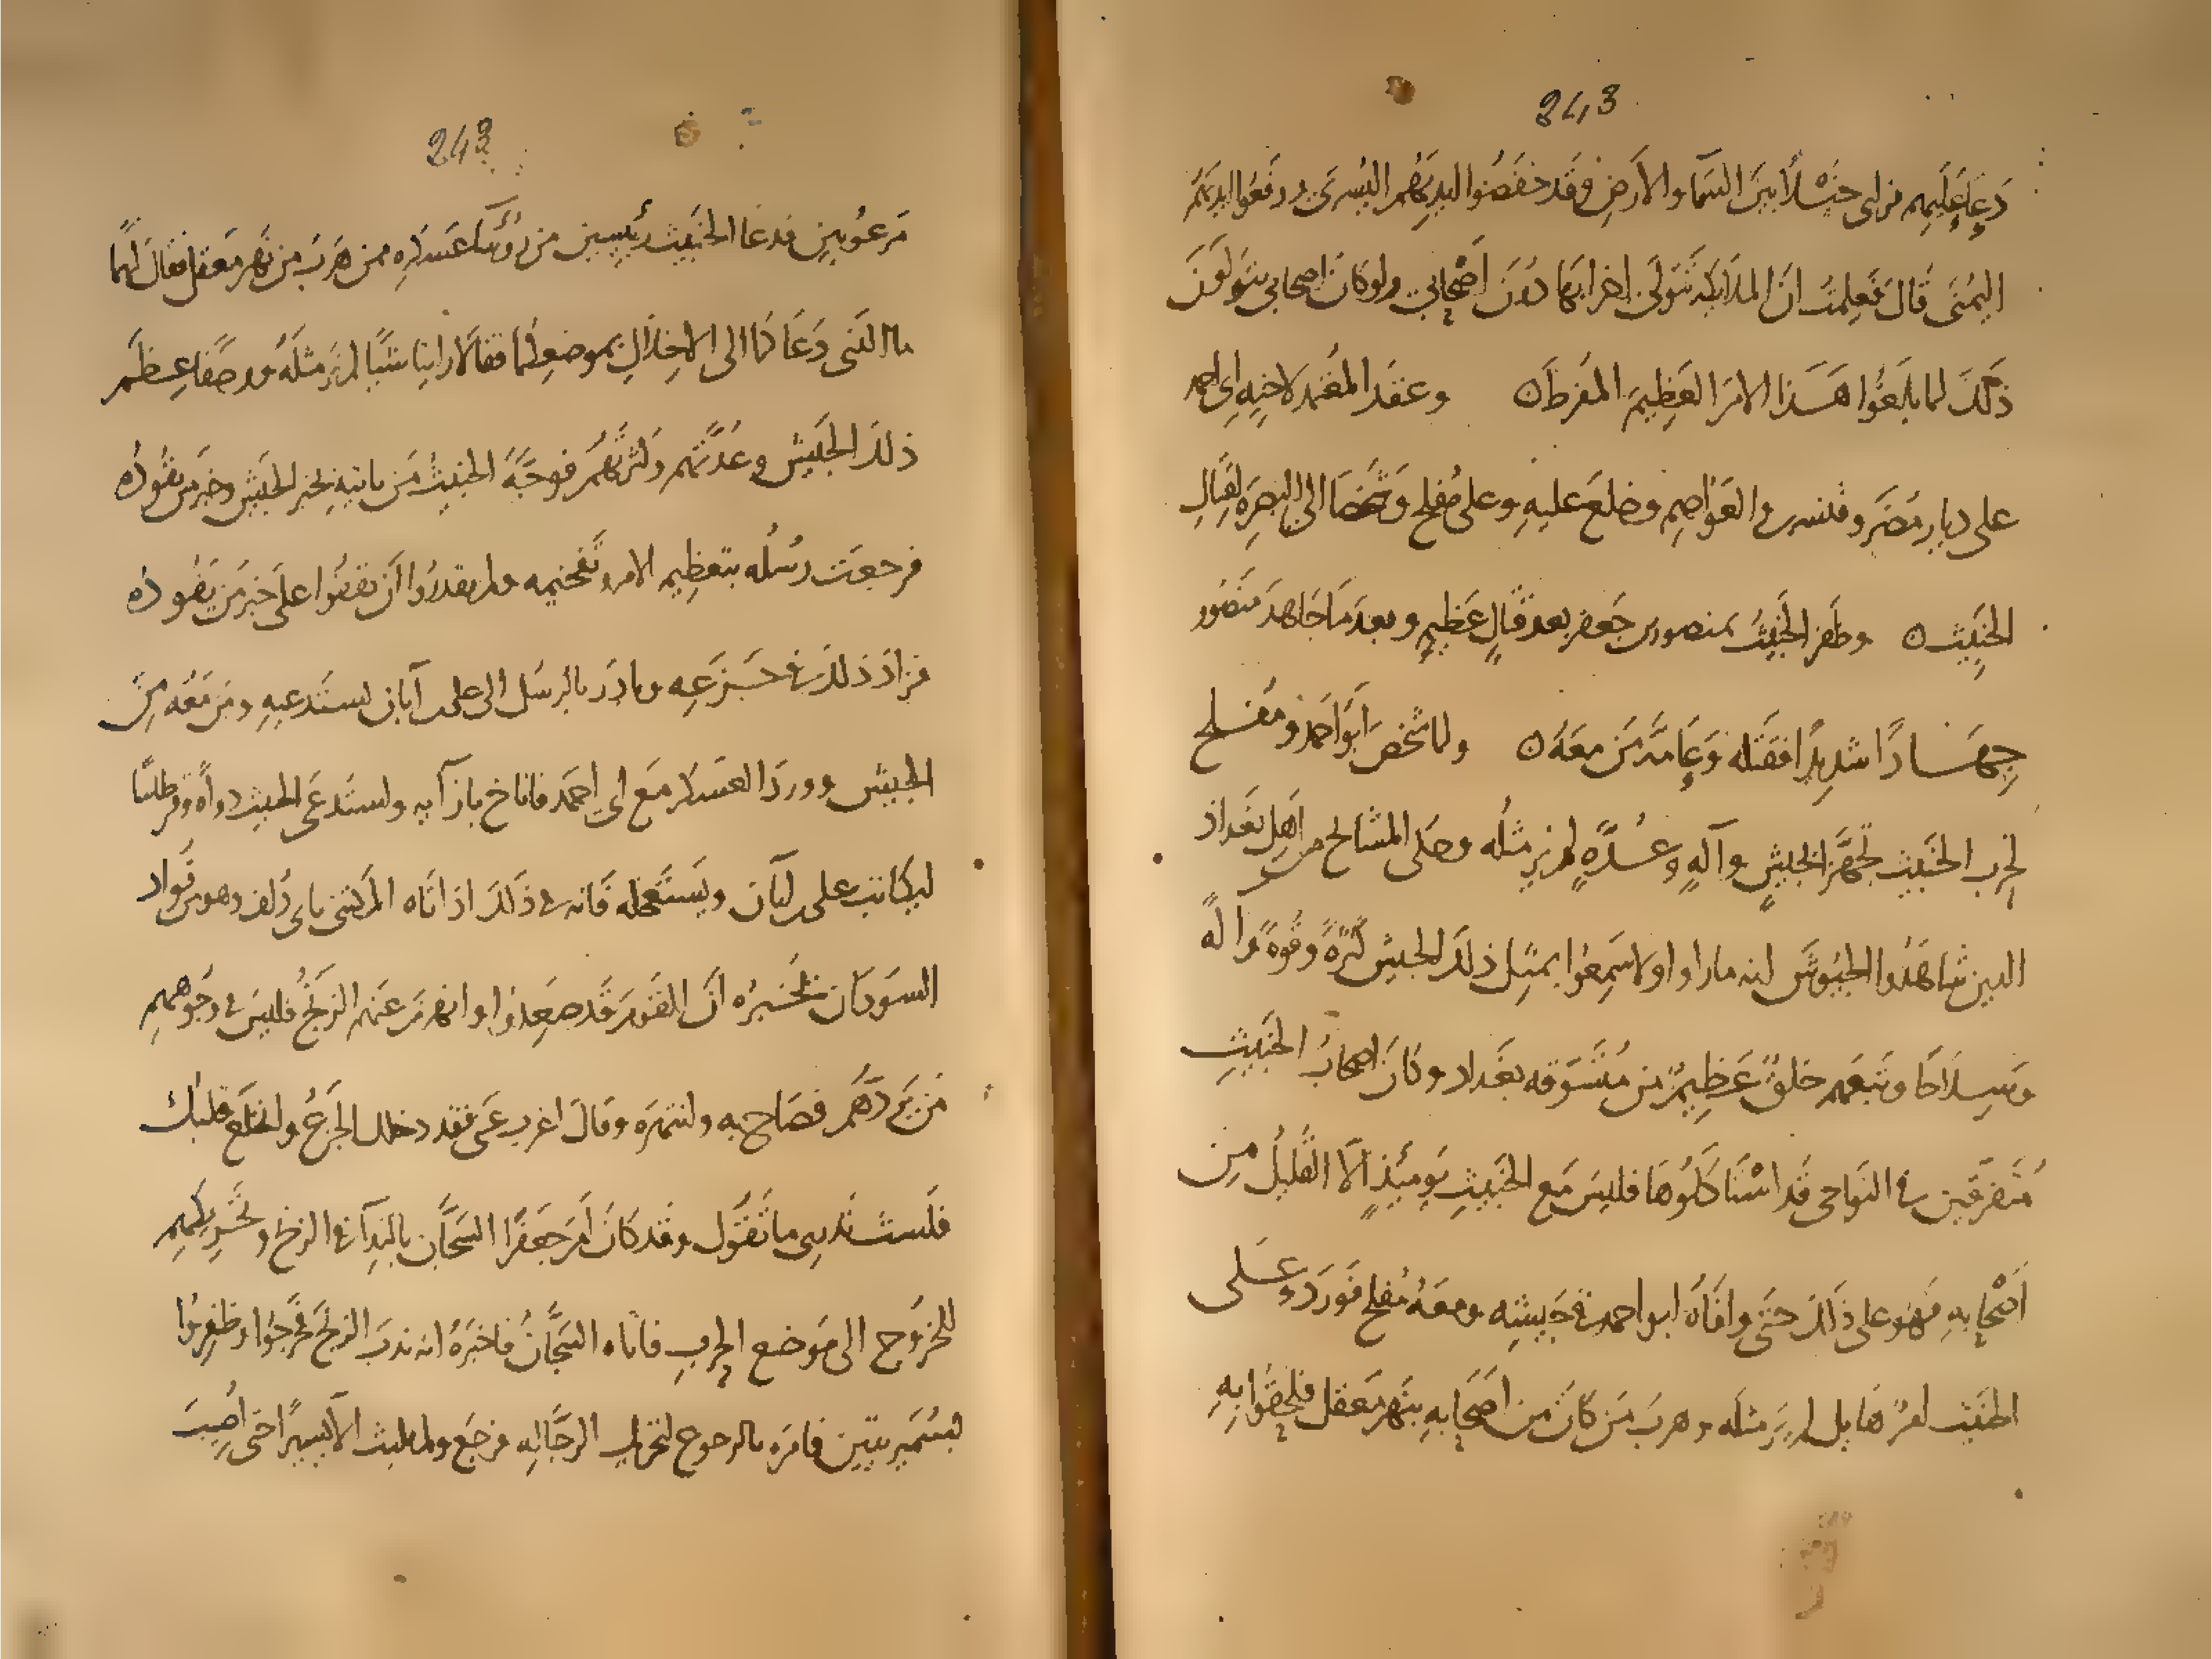 243
دعا عليهم فراى خيلًا بين السما والارض وقد خفضوا ايديهم اليسرى ورفعوا ايديهم
اليمنى قال فعلمت ان الملايكه تتولى اخرابها دون اصحابي ولو كان اصحابي يتولون
ذلك لما بلغوا هذا الامر العظيم المفرط ن وعقد المعتمد لاخيه ابى احمد
على ديار مضر وقنسرين والعواصم وخلع عليه وعلى مفلح وشخصا الى البصره لقتال
الخبيث ن وظفر الخبيث بمنصور بن جعفر بعد قتال عظيم وبعد ما جاهد منصور
جهادًا شديدًا فقتله وعامة من معه ن ولما شخص ابو احمد ومفلح
لحرب الخبيث تجهز الجيش وآلةٍ وعدةٍ لم ير مثله وحكى المشايخ من اهل بغداذ
الذين شاهدوا الجيوش انه ما راوا ولا سمعوا بمثل ذلك الجيش كثرةً وقوةً وآلةً
وسلاحا وتبعهم خلقٌ عظيمٌ من متسوقه بغداد وكان اصحاب الخبيث
متفرقين فى النواحى قد استاكلوها فليس مع الخبيث يوميذٍ الا القليل من
اصحابه فهو على ذلك حتى وافاه ابو احمد فى جيشه ومعه مفلح فورد وعلى
الخبيث امرٌ هايل لم ير مثله وهرب من كان من اصحابه بنهر معقل فلحقوا به
243
مرعوبين فدعا الخبيث رئيسين من رؤسآ عسكره ممن هرب من نهر معقل فقال لهما
ما الذى دعاكما الى الاخلال بموضعكما فقالا راينا شيًا لم نر مثله ووصفا عظم
ذلك الجيش وعدتهم وكثرتهم فوجه الخبيث من ياتيه بخبر الجيش وخبر من يقوده
فرجعت رسله بتعظيم الامر وتفخيمه ولم يقدروا ان يقفوا على خبر من يقوده
فزاد ذلك فى جزعه وبادر بالرسل الى على بن آبان يستدعيه ومن معه من
الجيش وورد العسكر مع ابى احمد فاناخ بازآيه واستدعى الخبيث دواه وقرطاسًا
ليكاتب على بن ابان ويستعجله فانه فى ذلك اذ اتاه المكنى بابى دلف وهو من قواد
السودان يخبره ان القوم قد صعدوا وانهزم عنهم الزنج فليس فى وجوههم
من يردهم فصاح به وانتهره وقال اغرب عنى فقد دخلك الجزع وانخلع قلبك
فلست تدرى ما تقول وقد كان امر جعفرًا السجان بالندآ فى الزنج وتحريكهم
للخروج الى موضع الحرب فاتاه السجان فاخبره انه ندب الزنج فخرجوا وظفروا
بسميريتين فامره بالرجوع لتحريك الرجاله فرجع ولم يلبث الا يسيرًا حتى اصيب